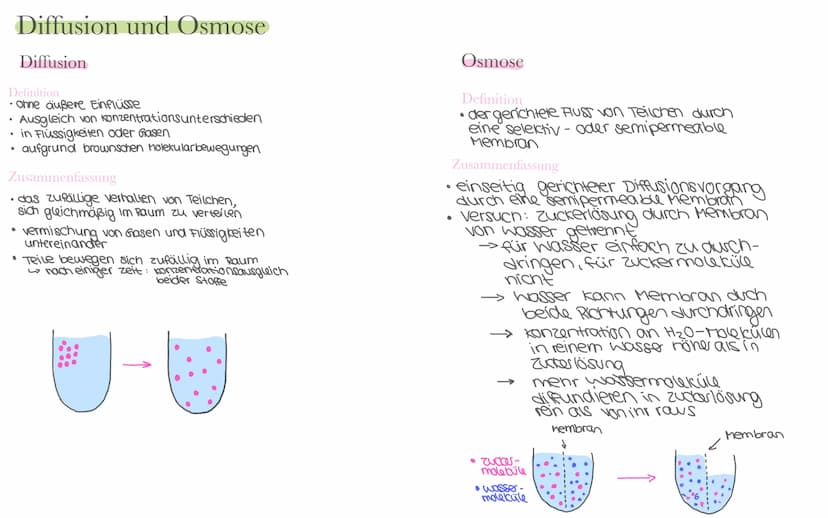 Diffusion und Osmose
Diffusion
Definition
• ohne äußere Einflüsse
• Ausgleich von Konzentrationsunterschieden
• in Flüssigkeiten oder Gasen
• aufgrund brownschen Molekularbewegungen
Zusammenfassung
• das zufällige verhalten von Teilchen,
sich gleichmäßig im Raum zu verteilen
• vermischung von Gasen und Flüssigkeiten
untereinander
• Teile bewegen sich zufällig im Raum
↳ nach einiger zeit: Konzentrationsausgleich
beider Stoffe
Osmose
Definition
• der gerichtete Fluss von Teilchen durch
eine selektiv- oder semipermeable
Membran
Zusammenfassung
• einseitig gerichteter Diffusionsvorgang
durch eine semipermeable Membran
• Versuch: Zuckerlösung durch Membran
von Wasser getrennt
→ für Wasser einfach zu durch-
dringen, für Zuckermoleküle
nicht
→ Wasser kann Membran duch
beide Richtungen durchdringen
→ Konzentration an H₂O-Molekülen
in reinem Wasser höher als in
Zuckerlösung
→ mehr Wassermoleküle
diffundieren in Zuckerlösung
rein als von ihr raus
Membran
Membran
• Zucker-
moleküle
• Wasser-
moleküle